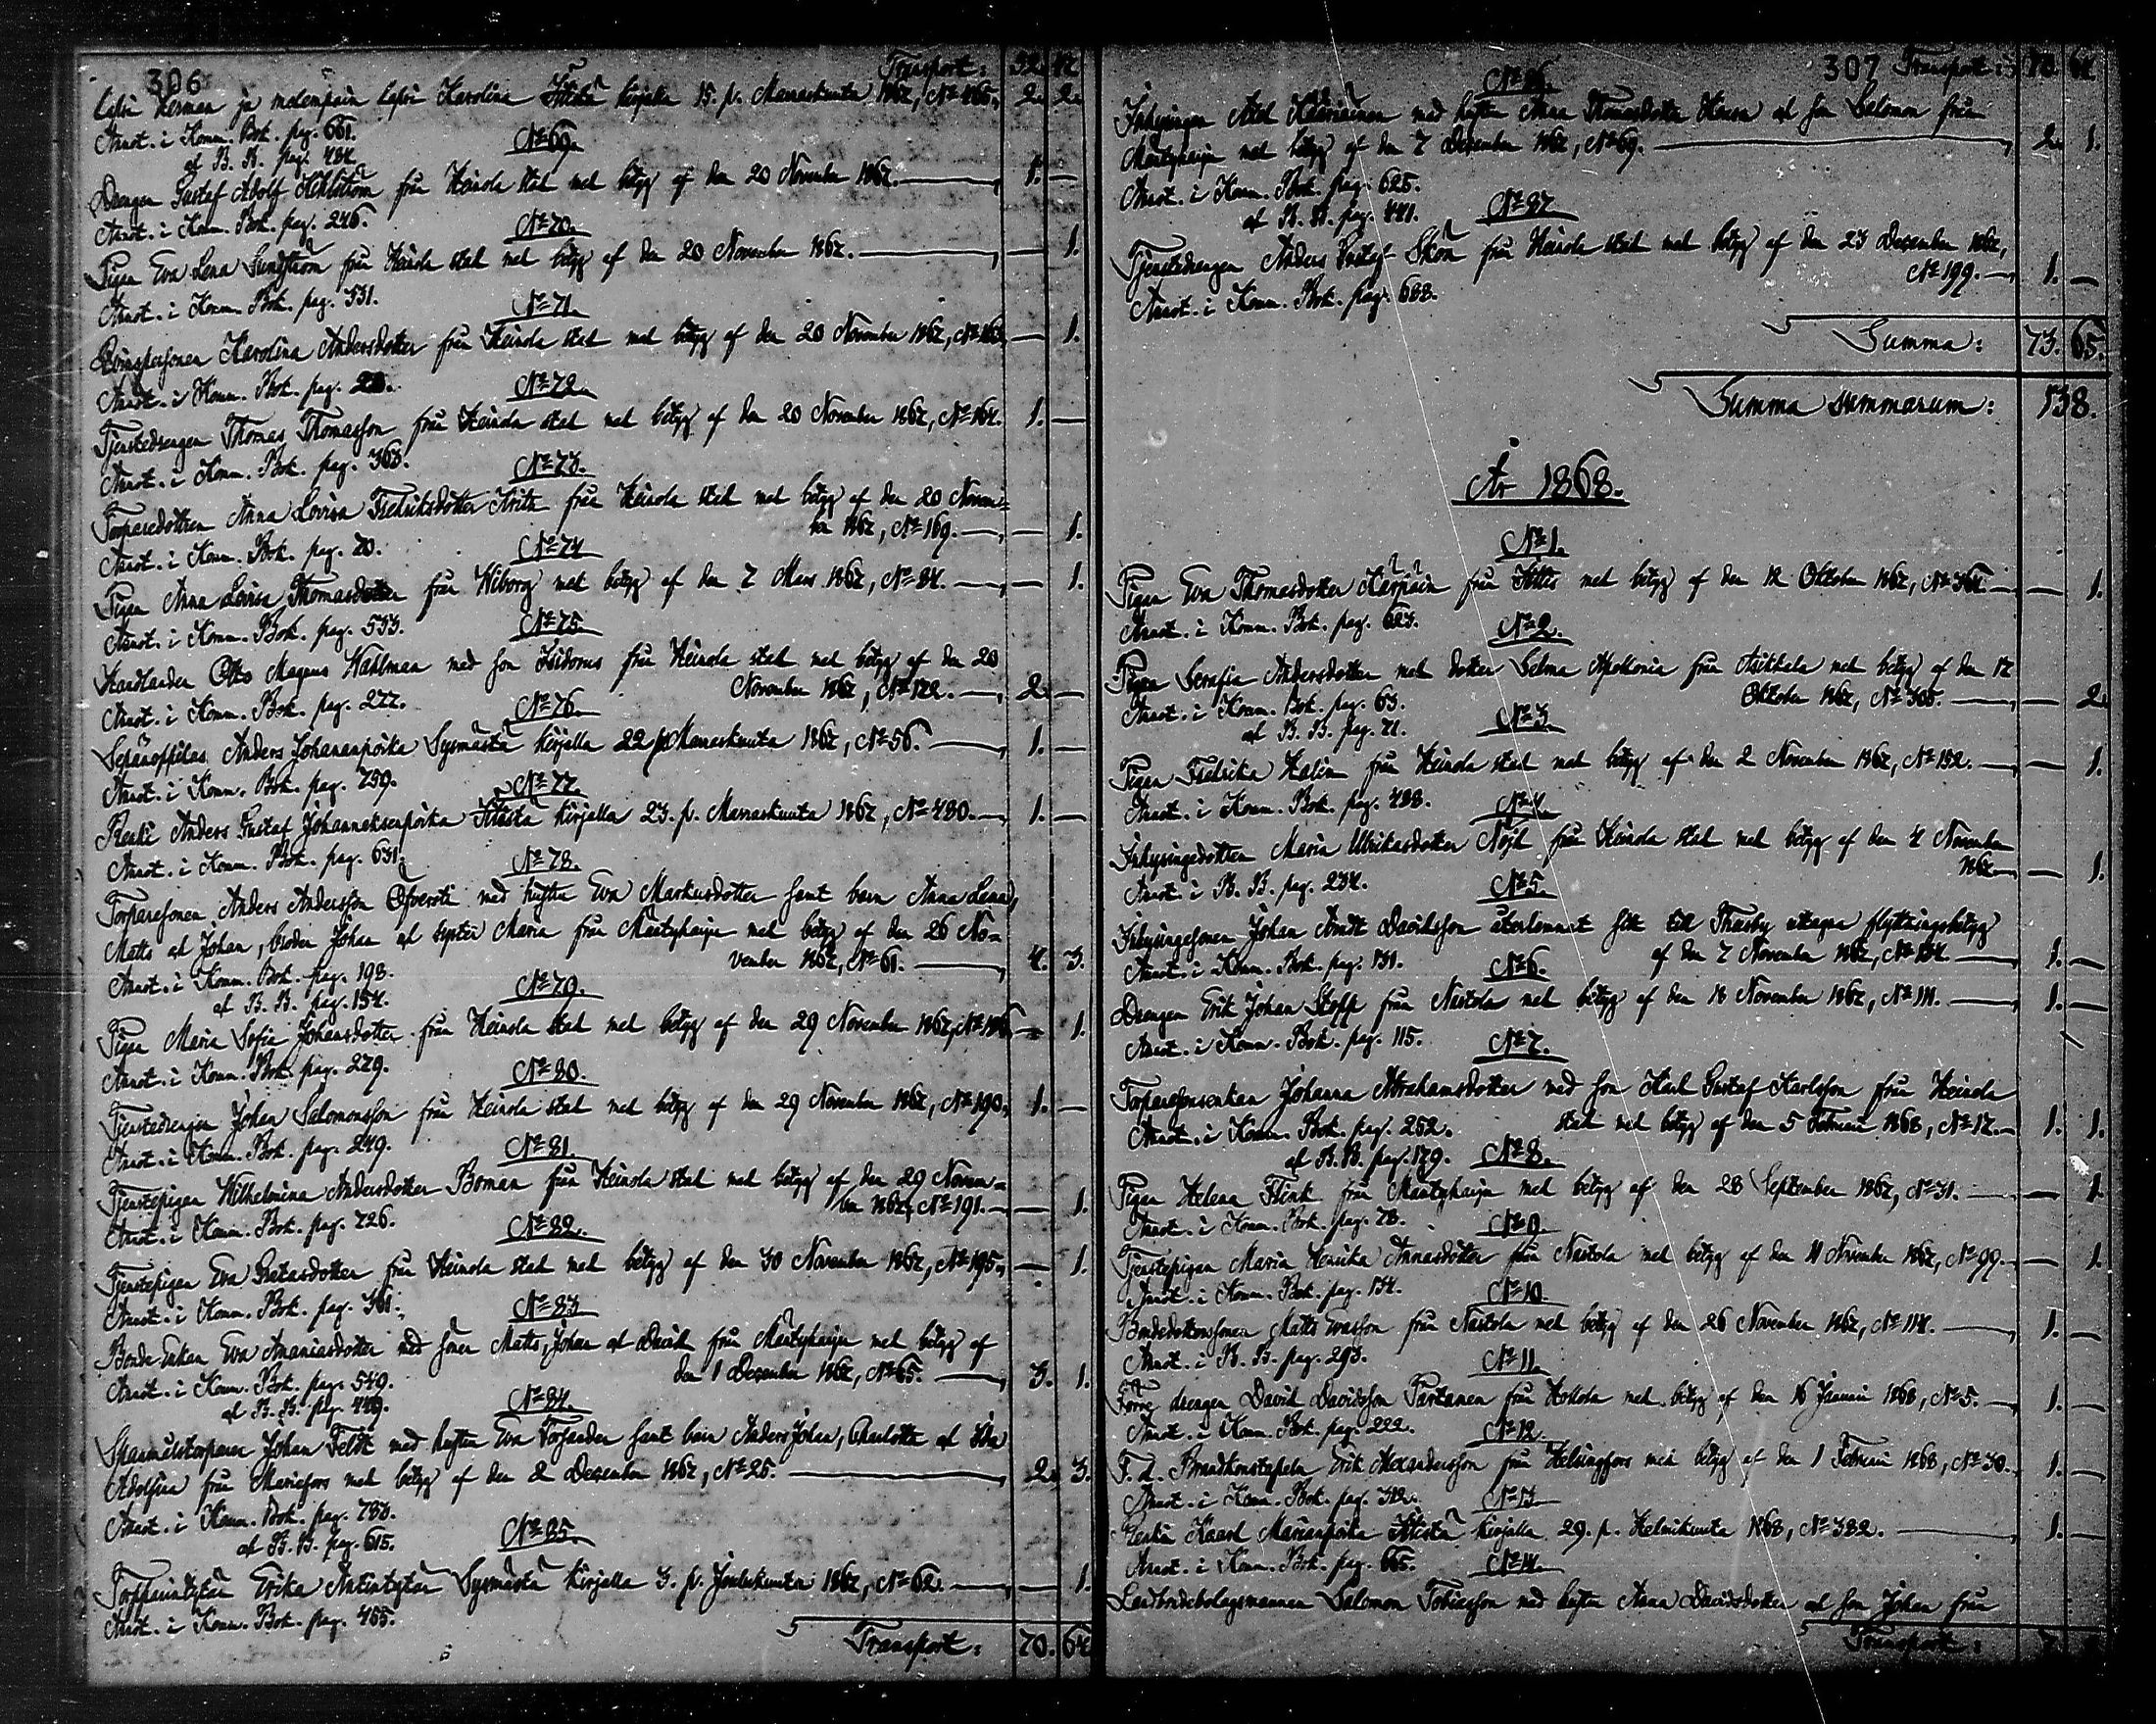 306
Transport:
lapsi Herman ja molempain lapsi Karolina Iitistä kirjalla 15. p. Marraskuuta 1867, No 466. 2. 2.
Annot. i Komm. Bok. pag. 661.
No 69.
at B. B. pag. 484.
Drengen Gustaf Adolf Ahlström från Heinola stad med betyg af den 20 November 1867. 1. —
Annot. i Komm. Bok. pag. 246.
No 70.
Pigan Eva Lena Sundström från Heinola stad med betyg af den 20 November 1867. — 1.
Annot. i Komm. Bok. pag. 531.
No 71.
Qvinspersonen Karolina Andersdotter från Heinola stad med betyg af den 20 November 1867, No 163. — 1.
Annot. i Komm. Bok. pag. 28.
No 72.
Tjenstedrengen Thomas Thomasson från Heinola stad med betyg af den 20 November 1867, No 164. 1. —
Annot. i Komm. Bok. pag. 363.
No 73.
Torparedottren Anna Lovisa Fredriksdotter från Heinola stad med betyg af den 20 Novem-
ber 1867, No 169. — 1.
Annot. i Komm. Bok. pag. 70.
No 74
Pigan Anna Lovisa Thomasdotter från Wiborg med betyg af den 7 Mars 1867, No 84. — 1.
Annot. i Komm. Bok. pag. 533.
No 75.
Handlanden Otto Magnus Wahlman med son Isidorus från Heinola stad med betyg af den 20
November 1867, No 172. 2. —
Annot. i Komm. Bok. pag. 277.
No 76.
Sepänoppilas Anders Johananpoika Sysmästä kirjalla 22 p. Marraskuuta 1867, No 56. 1. —
Annot. i Komm. Bok. pag. 759.
No 77.
Renki Anders Gustaf Johanneksenpoika Iitistä kirjalla 23. p. Marraskuuta 1867, No 480. 1. —
Annot. i Komm. Bok. pag. 631.
No 78.
Torparesonen Anders Andersson Öfverste med hustru Eva Markusdotter samt barn Anna Lena,
Matts at Johan, broder Johan at syster Maria från Mäntyharju med betyg af den 26 No-
vember 1867, No 61. 4. 3.
Annot. i Komm. Bok. pag. 198.
at B. B. pag. 154.
No 79.
Pigan Maria Sofia Johansdotter från Heinola stad med betyg af den 29 November 1867, No 186 — 1.
Annot. i Komm. Bok. pag. 279.
No 80.
Tjenstedrengen Johan Salomonsson från Heinola stad med betyg af den 29 November 1867, No 190. 1. —
Annot. i Komm. Bok. pag. 249.
No 81.
Tjenstepigan Wilhelmina Andersdotter Boman från Heinola stad med betyg af den 29 Novem-
ber 1867, No 191. — 1.
Annot. i Komm. Bok. pag. 726.
No 82.
Tjenstepigan Eva Gretasdotter från Heinola stad med betyg af den 30 November 1867, No 195. — 1.
Annot. i Komm. Bok. pag. 361.
No 83
Bonde Enkan Eva Ananiasdotter med söner Matts, Johan at David från Mäntyharju med betyg af
den 1 December 1867, No 65. 3. 1.
Annot. i Komm. Bok. pag. 549.
at B. B. pag. 449.
No 84.
Spanmålstorparen Johan Feldt med hustru Eva Forsander samt barn Anders Johan, Charlotta at Ida
Adolfina från Mariefors med betyg af den 2 December 1867, No 25. 2. 3.
Annot. i Komm. Bok. pag. 783.
at B. B. pag. 615.
No 85.
Torpparintytär Erika Antintytär Sysmästä kirjalla 3. p. Joulukuuta 1867, No 62. — 1.
Annot. i Komm. Bok. pag. 455.
Transport: 70. 64
307 Transport: 70. 64
No 86.
Inhysingen Abel med hustru Anna Thomasdotter at son Salomon från
Mäntyharju med betyg af den 7 December 1867, No 69. 2. 1.
Annot. i Komm. Bok. pag. 625.
at B. B. pag. 441.
No 87
Tjenstedrengen Anders Gustaf Skön från Heinola stad med betyg af den 23 December 1867,
No 199. 1. —
Annot. i Komm. Bok. pag. 688.
Summa: 73. 65.
Summa summarum: 138.
År 1868.
No 1.
Pigan Eva Thomasdotter från Ittis med betyg af den 12 Oktober 1867, No 364. — 1.
Annot. i Komm. Bok. pag. 623.
No 2.
Pigan Serafia Andersdotter med dotter Selma Apollonia från Asikkala med betyg af den 17
Oktober 1867, No 305. — 2.
Annot. i Komm. Bok. pag. 63.
at B. B. pag. 71.
No 3
Pigan Fredrika Halin från Heinola stad med betyg af den 2 November 1867, No 152. — 1.
Annot. i Komm. Bok. pag. 488.
No 4
Inhysingedottren Maria Ulrikasdotter Nöjd från Heinola stad med betyg af den 4 November
1867. — 1.
Annot. i B. B. pag. 234.
No 5.
Inhysingesonen Johan Arvidt Davidsson återlemnat sitt till Thusby uttagna flyttningsbetyg
af den 7 November 1867, No 134. 1. —
Annot. i Komm. Bok. pag. 131.
No 6.
Drengen Erik Johan Stopp från Nastola med betyg af den 18 November 1867, No 111. 1. —
Annot. i Komm. Bok. pag. 115.
No 7.
Torparesonsenkan Johanna Abrahamsdotter med son Karl Gustaf Karlsson från Heinola
stad med betyg af den 5 Februari 1868, No 17. 1. 1.
Annot. i Komm. Bok. pag. 252.
at B. B. pag. 179.
No 8.
Pigan Helena Flink från Mäntyharju med betyg af den 28 September 1867, No 31. — 1.
Annot. i Komm. Bok. pag. 78.
No 9.
Tjenstepigan Maria Henrika Annasdotter från Nastola med betyg af den 11 November 1867, No 99. — 1.
Annot. i Komm. Bok. pag. 134.
No 10
Bondedottersonen Matts Evasson från Nastola med betyg af den 26 November 1867, No 114. 1. —
Annot. i B. B. pag. 293.
No 11.
Förre drengen David Davidsson Partanen från Hollola med betyg af den 16 Januari 1868, No 5. 1. —
Annot. i Komm. Bok. pag. 222.
No 12.
F. d. Brandkonstapeln Erik Alexandersson från Helsingfors med betyg af den 1 Februari 1868, No 30. 1. —
Annot. i Komm. Bok. pag. 312.
No 13
Renki Kaarl Marianpoika Iitistä kirjalla 29. p. Helmikuuta 1868, No 382. 1. —
Annot. i Komm. Bok. pag. 665.
No 14.
Landbondebolagsmannen Salomon Tobiasson med hustru Anna Davidsdotter at son Johan från
Transport: